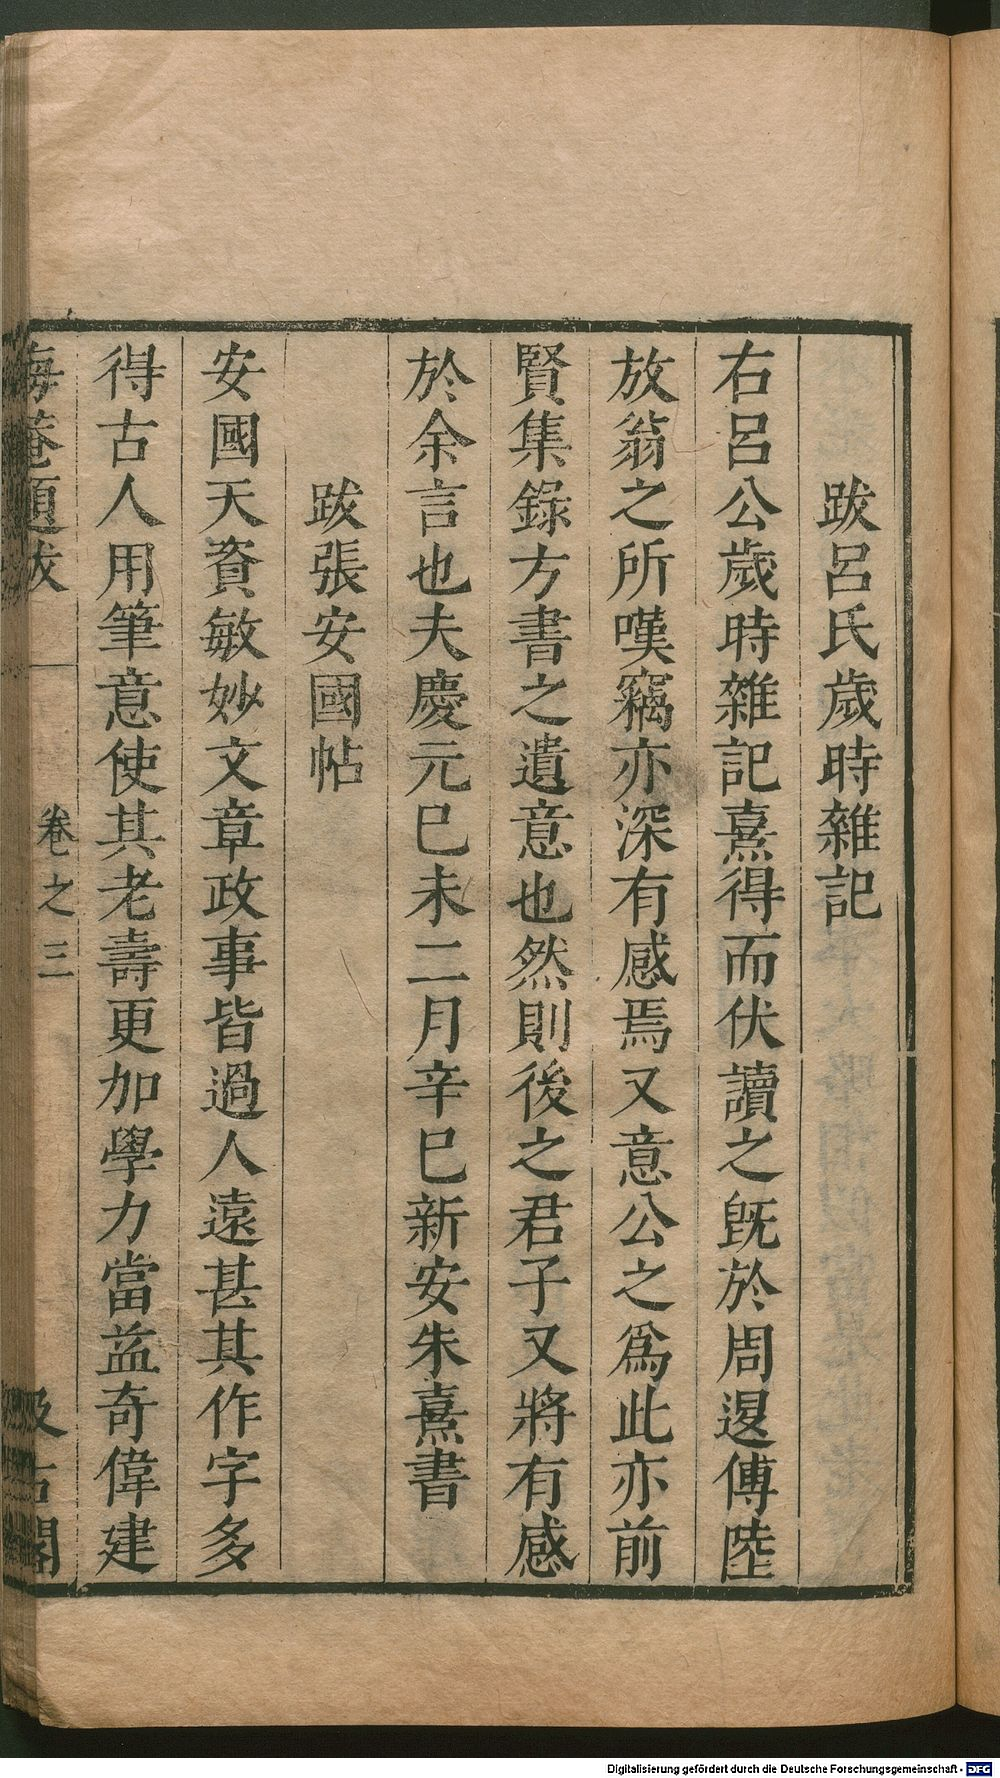 跋呂氏歲時雜記
右呂公歲時雜記熹得而伏讀之旣於周退傅陸
放翁之所嘆竊亦深有感焉又意公之爲此亦前
賢集錄方書之遺意也然則後之君子又將有感
於余言也夫慶元巳未二月辛巳新安朱熹書
跋張安國帖
安國天資敏妙文章政事皆過人遠甚其作字多
得古人用筆意使其老壽更加學力當益奇偉建
海菴題跋
卷之三
汲古閣
Digitalisierung gefördert durch die Deutsche Forschungsgemeinschaft - DFG